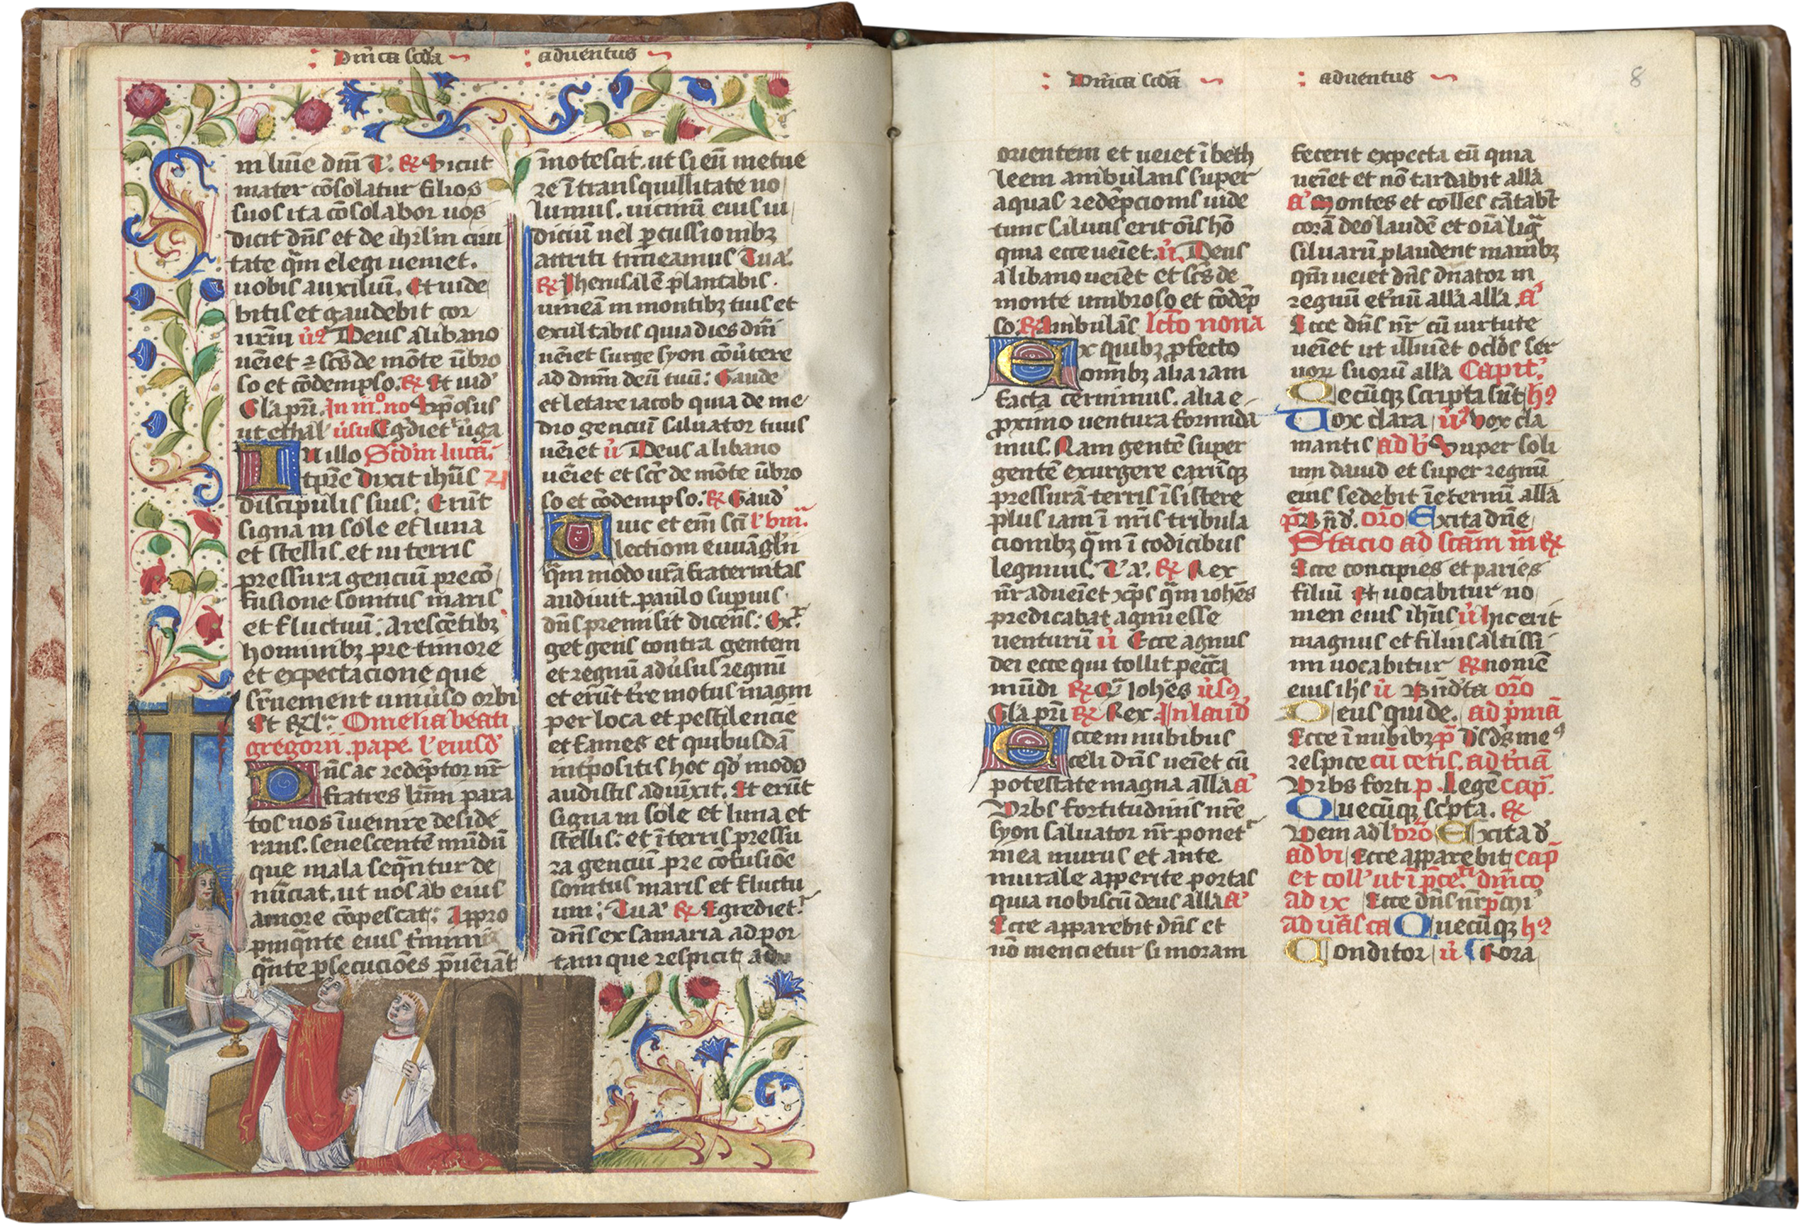 Dm̄ca scd̄a aduentus
in lum̄e dm̄i V̓. ℟ Sicut
mater cōsolatur filios
suos ita cōsolabor uos
dicit dn̄s et de ihrl̄m ciui
tate qm̄ elegi ueniet.
uobis auxiliū. Et uide
bitis et gaudebit cor
urm̄ v̓s Deus a libano
uēniet ⁊ scs̄ de mōte ūbro
so et cōdempso. ℟ Et uid'
Gla pr̄i
ut ethal' Egdiet' uīga
In illo Scd̄m lucā.
tp̄re dixit ihūs 21
discipulis suis: Erūt
signa in sole et luna
et stellis. et in terris
pressura genciū pre cō
fusione sonitus maris
et fluctuū: Arescētibꝫ
hominibꝫ pre timore
et expectacione que
sup̄uenient uniūso orbi
Et Rel'. Omelia beati
gregorii. pape. l' eiusd'
Dn̄s ac redēptor nr̄
fratres km̄i para
tos nos īuenire deside
rans. senescentē mūdū
que mala seqn̄tur de
nūciat. ut nos ab eius
amore cōpescat: Appro
pinqn̄te eius t'minū
qn̄te psecucōnes pueniāt
inotescit. ut si eū metue
re ī transquillitate no
lumus. uicinū eius iu
diciū uel pcussionibꝫ
attriti timeamus Tu a'.
℟ Jherusalē plantabis.
uineā in montibꝫ tuis et
exultabis quia dies dm̄i
uēniet surge syon cōuertere
ad dnm̄ deū tuū: Gaude
et letare iacob quia de me
dio genciū saluator tuus
uēniet v̓ Deus a libano
uēniet et scs̄ de mōte ūbro
so et cōdempso. ℟ Gaud'
Huic et em̄ sc̄i l' viii.
lectioni euuāgl'ii
qm̄ modo ur̄a fraternitas
audiuit. paulo supius
dn̄s premisit dicens: Ex
get gens contra gentem
et regnū aduīsus regnū
et erūt tr̄e motus magni
per loca et pestilencie
et fames et quibusdā
int'positis hoc qd' modo
audistis adiuxit. Et erūt
signa in sole et luna et
stellis: et ī terris pressu
ra genciū p̄re cōfusiōe
sonitus maris et fluctu
um: Tu a' ℟ Egrediet'
dn̄s ex samaria ad por
tam que respicit ad
Dm̄ca scd̄a aduentus 8
orientem et ueiet ī beth
leem ambulans super
aquas redēpcionis iude
tunc saluus erit oīs hō
quia ecce ueniet. v̓. Deus
a libano ueiet et scs̄ de
monte umbroso et cōdēp
so. ℟ Ambulās lcō nona
Ex quibꝫ pfecto
omnibꝫ alia iam
facta cernimus. alia e
proximo uentura formida
mus. Nam gentē super
gentē exurgere carūqꝫ
pressurā terris īsistere
plus iam ī nr̄is tribula
cionibꝫ qm̄ ī codicibus
legimus. Tu a'. ℟ Rex
nr̄ adueiet xp̄s qm̄ iohēs
predicabat agnū esse
venturū v̓ Ecce agnus
dei ecce qui tollit pecc̄a
mūdi ℟ Iohēs v̓s
Gla pr̄i ℟ Rex. In laud'
Eccem nubibus
celi dn̄s ueiet cū
potestate magna alla a'
Vrbs fortitudinis nr̄e
syon saluator nr̄ ponet'
in ea murus et ante
murale apperite portas
quia nobiscū deus alla a'
Ecce apparebit dn̄s et
nō mencietur si moram
fecerit expecta eū quia
ueiet et nō tardabit alla
a' Montes et colles cātabt̄
corā deo laudē et oīa liḡ
siluarū plaudent manibꝫ
qm̄ ueiet dn̄s dn̄ator in
regnū etnū alla alla a'
Ecce dn̄s nr̄ cū uirtute
ueiet ut illuīet oclōs ser
uor suorū alla Capit'.
Quecūqꝫ scripta sūt h9
Vox clara v̓ Vox cla
mantis ad b' Super soli
um dauid et super regnū
eius sedebit ī eternū alla
p̄s bn̄d'. oro Exita dn̄e
Stacio ad scām m̄ ℟
Ecce concipies et paries
filiū Et uocabitur no
men eius ihūs v̓ Hic erit
magnus et filius altissi
mi uocabitur ℟ noniē
eius ihs v̓ Bn̄d'ta oro
Deus qui de. ad pmā
Ecce ī nubibꝫ p̄ Ds̄ ds̄ me9
respice cū cetis. ad t'ciā
Vrbs forti p. Legē cap.
Quecūqꝫ scpta. ℟
Veni ad l' oro Exita d'
ad vi Ecce apparebit cap
et coll' ut ī pce. dm̄co
ad ix Ecce dn̄s nr̄
ad Quecūqꝫ h9
Conditor v̓ Rora